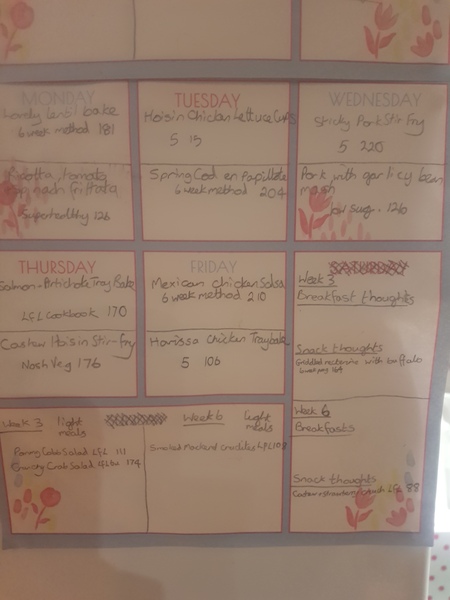 MONDAY
Lovely lentil bake
6 week method 181
Ricotta, tomato
spinach frittata
Superhealthy 126
TUESDAY
Hoisin Chicken Lettuce Cups
5 15
Spring Cod en Papillote
6 week method 204
WEDNESDAY
Sticky Pork Stir Fry
5 220
Pork with garlicy bean
mash
low sugar 126
THURSDAY
Salmon + Artichoke Tray Bake
LFL Cookbook 170
Cashew Hoisin Stir-fry
Nosh Veg 176
FRIDAY
Mexican chicken Salsa
6 week method 210
Harissa Chicken Traybake
5 106
Week 3
Breakfast thoughts
Snack thoughts
Griddled nectarine with buffalo
164
Week 6
Breakfasts
Snack thoughts
strawberry LFL 88
Week 3 light
meals
Cobb Salad LFL 111
Crunchy Crab Salad 174
Week 6 light
meals
Smoked Mackerel crudites LFL